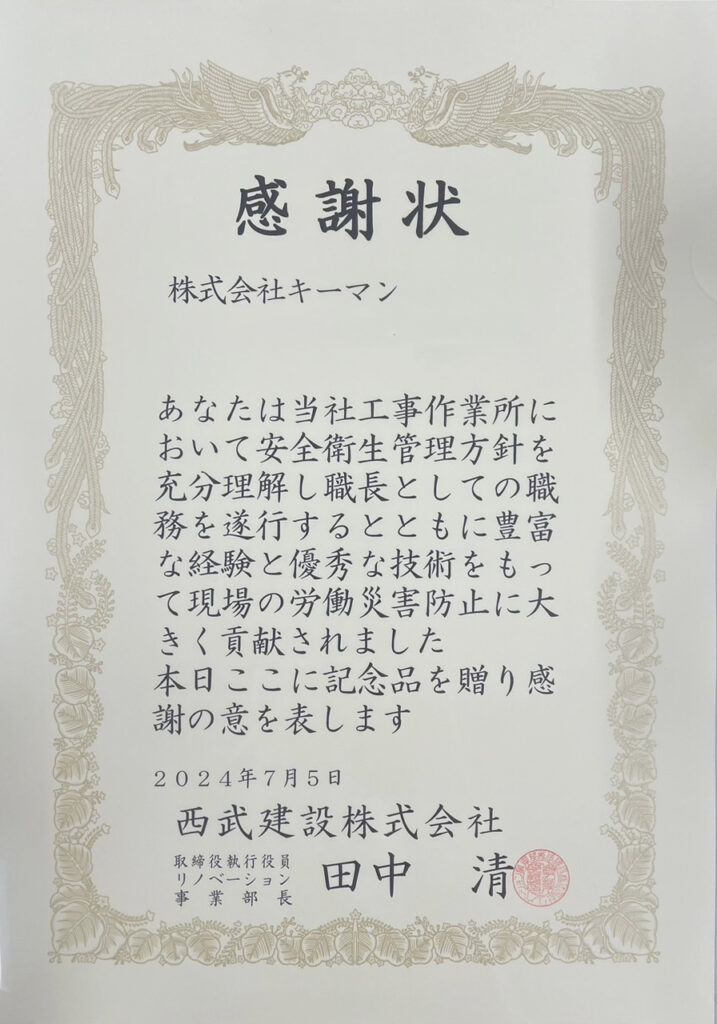 感謝状
株式会社キーマン
あなたは当社工事作業所に
おいて安全衛生管理方針を
充分理解し職長としての職
務を遂行するとともに豊富
な経験と優秀な技術をもっ
て現場の労働災害防止に大
きく貢献されました
本日ここに記念品を贈り感
謝の意を表します
2024年7月5日
西武建設株式会社
取締役執行役員
リノベーション
事業部長
田中 清